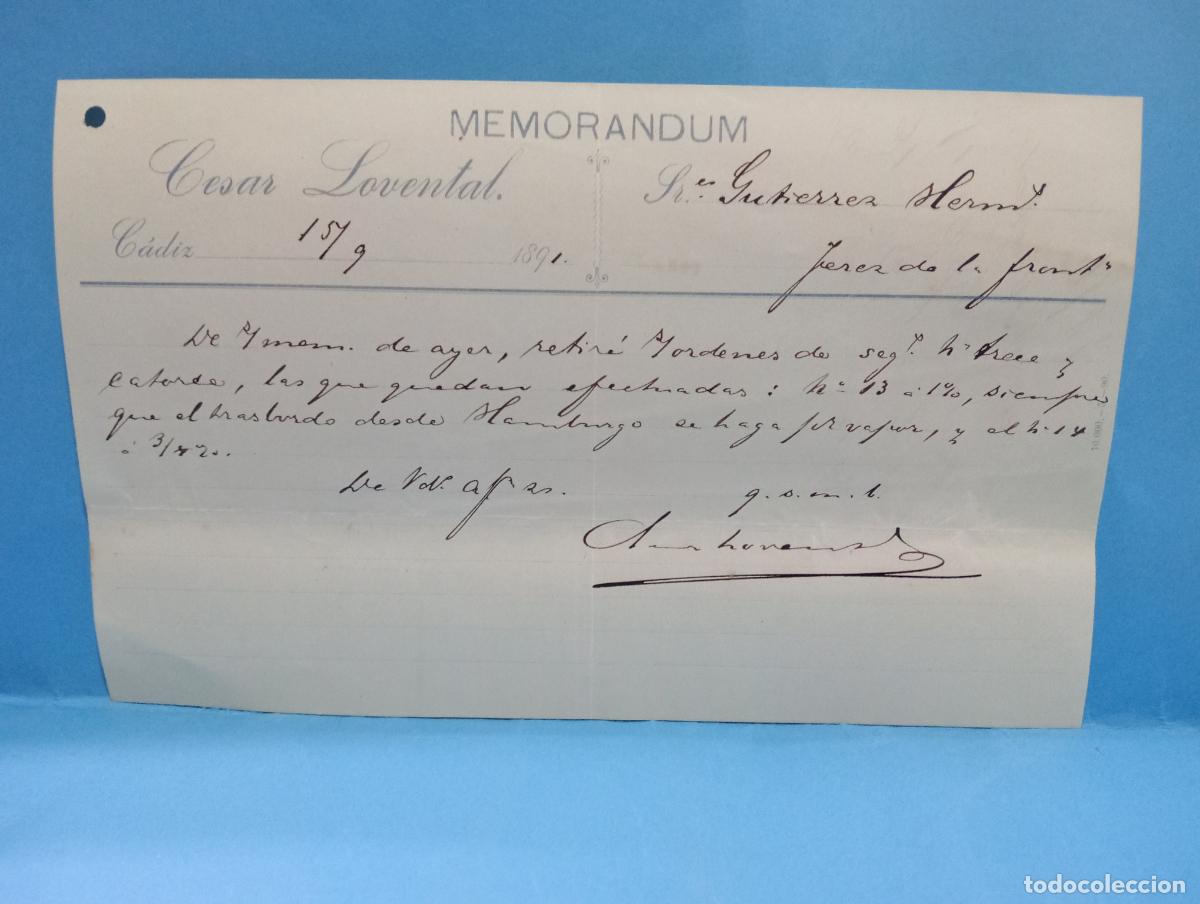 MEMORANDUM
Cesar Lovental.
Sr.es Gutierrez Herms.
Cádiz 15/9 1891.
Jerez de la Fronta
De s/ mem. de ayer, retiré s/ ordenes de segs. ns trece y
catorce, las que quedan efectuadas: no 13 a 1%, siempre
que el trasbordo desde Hamburgo se haga por vapor, y el no 14
a 3/4%.
De Vds. afmo.
q. s. m. b.
Cesar Lovental
10.000.
todocoleccion